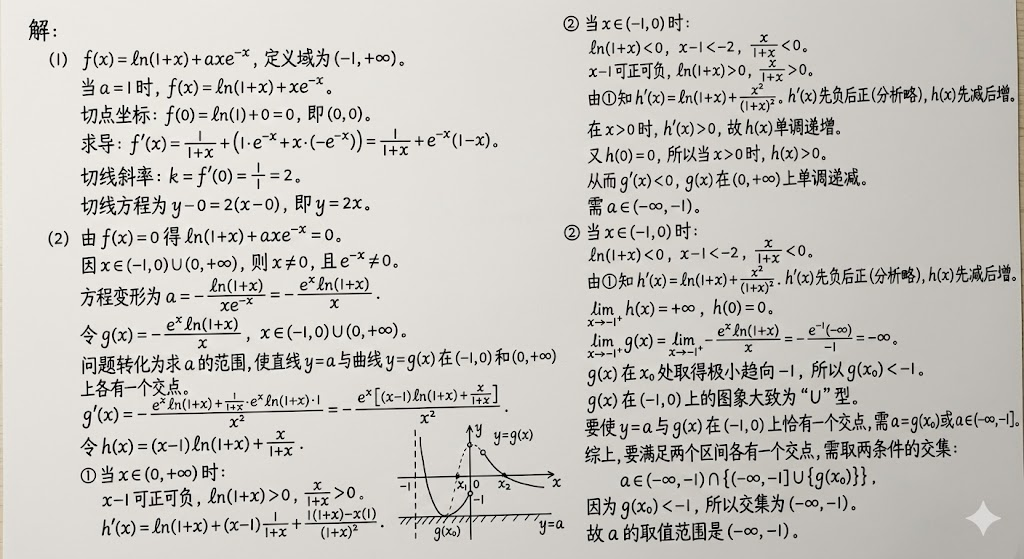 解:
(1) f(x)=ln(1+x)+axe^{-x}, 定义域为(-1,+∞)。
当a=1时, f(x)=ln(1+x)+xe^{-x}。
切点坐标: f(0)=ln(1)+0=0, 即(0,0)。
求导: f'(x)=\frac{1}{1+x}+(1·e^{-x}+x·(-e^{-x}))=\frac{1}{1+x}+e^{-x}(1-x)。
切线斜率: k=f'(0)=\frac{1}{1}=2。
切线方程为y-0=2(x-0), 即y=2x。
(2) 由f(x)=0得ln(1+x)+axe^{-x}=0。
因x∈(-1,0)∪(0,+∞), 则x≠0, 且e^{-x}≠0。
方程变形为a=-\frac{ln(1+x)}{xe^{-x}}=-\frac{e^{x}ln(1+x)}{x}.
令g(x)=-\frac{e^{x}ln(1+x)}{x}, x∈(-1,0)∪(0,+∞)。
问题转化为求a的范围, 使直线y=a与曲线y=g(x)在(-1,0)和(0,+∞)
上各有一个交点。
g'(x)=-\frac{e^{x}ln(1+x)+\frac{1}{1+x}·e^{x}ln(1+x)·1}{x^{2}}=-\frac{e^{x}[(x-1)ln(1+x)+\frac{x}{1+x}]}{x^{2}}.
令h(x)=(x-1)ln(1+x)+\frac{x}{1+x}.
①当x∈(0,+∞)时:
x-1可正可负, ln(1+x)>0, \frac{x}{1+x}>0。
h'(x)=ln(1+x)+(x-1)\frac{1}{1+x}+\frac{1(1+x)-x(1)}{(1+x)^{2}}.
y
y=g(x)
-1
x₁
0
x₂
x
-1
g(x₀)
y=a
② 当x∈(-1,0)时:
ln(1+x)<0, x-1<-2, \frac{x}{1+x}<0。
x-1可正可负, ln(1+x)>0, \frac{x}{1+x}>0。
由①知h'(x)=ln(1+x)+\frac{x^{2}}{(1+x)^{2}}。h'(x)先负后正(分析略), h(x)先减后增。
在x>0时, h'(x)>0, 故h(x)单调递增。
又h(0)=0, 所以当x>0时, h(x)>0。
从而g'(x)<0, g(x)在(0,+∞)上单调递减。
需a∈(-∞,-1)。
② 当x∈(-1,0)时:
ln(1+x)<0, x-1<-2, \frac{x}{1+x}<0。
由①知h'(x)=ln(1+x)+\frac{x^{2}}{(1+x)^{2}}. h'(x)先负后正(分析略), h(x)先减后增。
\lim_{x→-1^{+}} h(x)=+∞, h(0)=0。
\lim_{x→-1^{+}} g(x)=\lim_{x→-1^{+}}-\frac{e^{x}ln(1+x)}{x}=-\frac{e^{-1}(-∞)}{-1}=-∞。
g(x)在x₀处取得极小趋向-1, 所以g(x₀)<-1。
g(x)在(-1,0)上的图象大致为“U”型。
要使y=a与g(x)在(-1,0)上恰有一个交点, 需a=g(x₀)或a∈(-∞,-1]。
综上, 要满足两个区间各有一个交点, 需取两条件的交集:
a∈(-∞,-1)∩{(-∞,-1]∪{g(x₀)}},
因为g(x₀)<-1, 所以交集为(-∞,-1)。
故a的取值范围是(-∞,-1)。